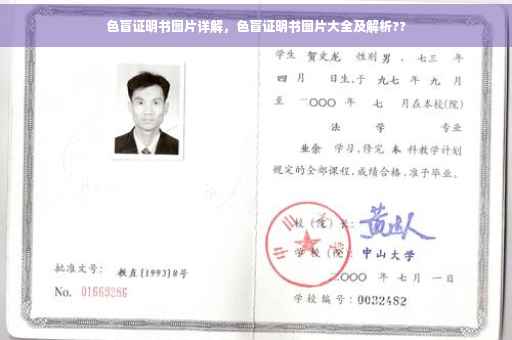 色盲证明书图片详解，色盲证明书图片大全及解析??
学生 贺文龙 性别 男，七三 年
四 月 日生，于 九七 年 九 月
至 二〇〇〇 年 七 月在本校(院)
法 学 专业
业余 学习，修完 本 科教学计划
规定的全部课程，成绩合格，准予毕业。
校（院）长：
学校（院）： 中山大学
二〇〇〇 年 七 月 一 日
学校编号：0032482
批准文号： 教直[1993]8号
No. 01669286